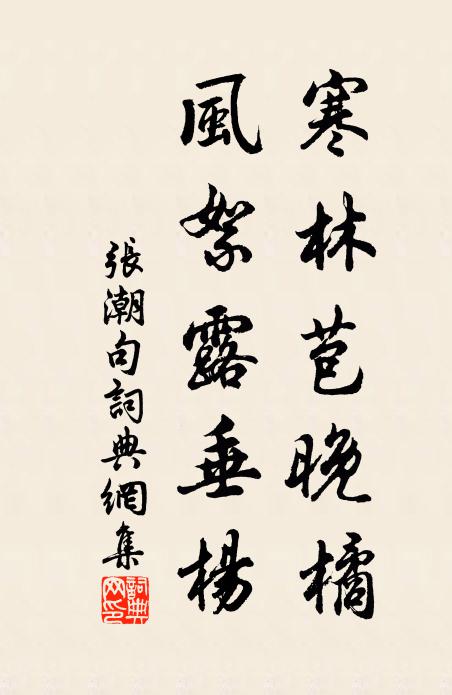 寒林苞晚橘
風絮露垂楊
張潮句詞典網集
詞典网印